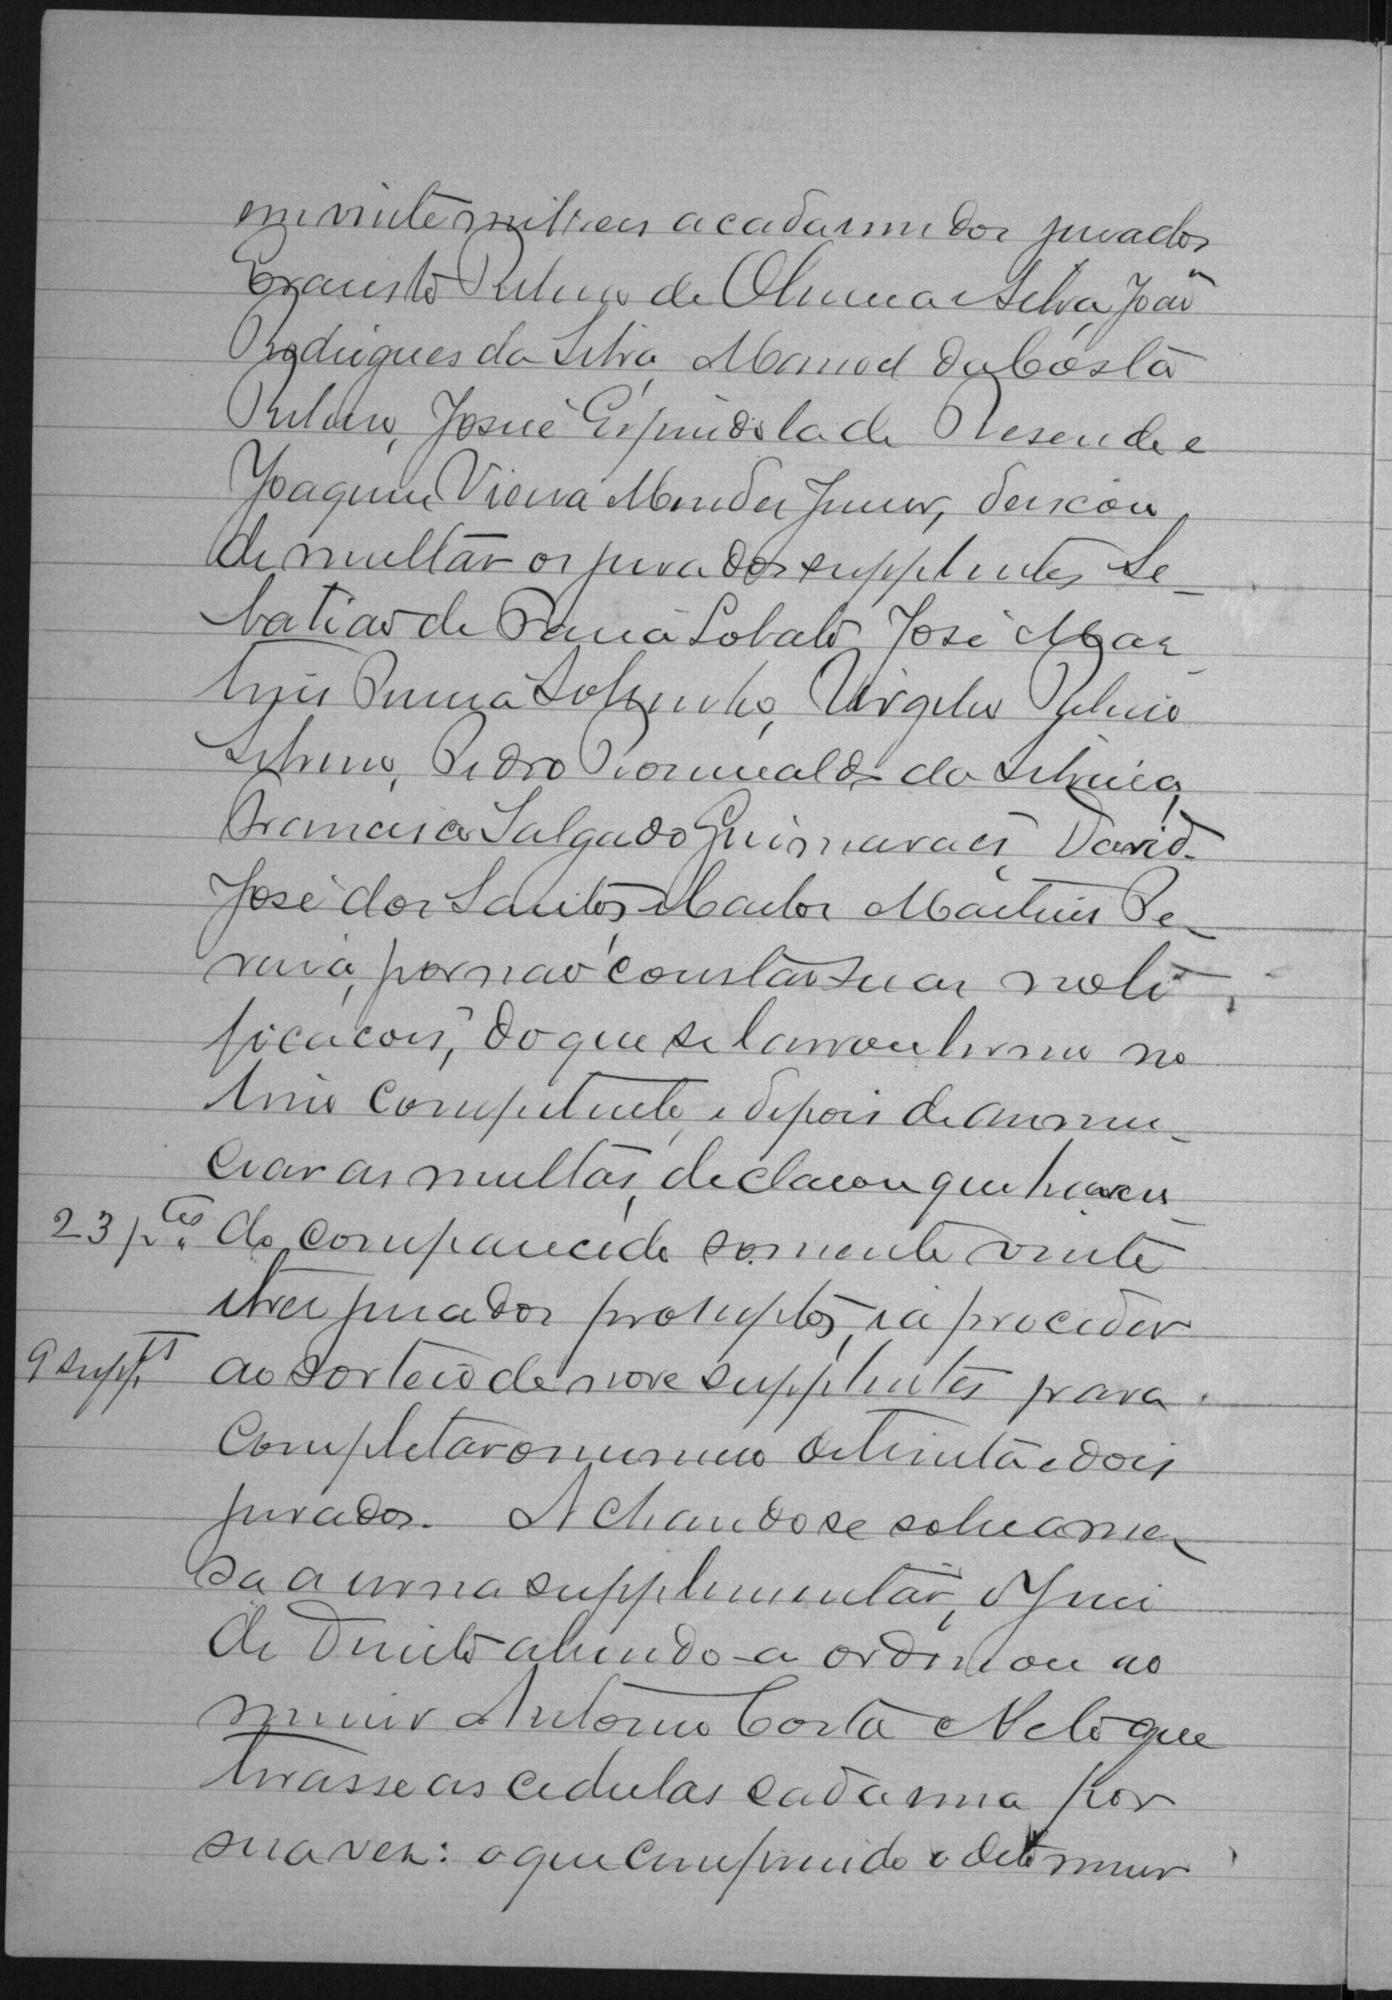 em vinte mil reis a cada um dos jurados
Exausto Ribeiro de Oliveira e Silva, João
Rodrigues da Silva, Manoel da Costa
Ribeiro, Josué Espindola de Resende e
Joaquim Vieira Mendes Junior, deixou
de multar os jurados supplentes Se-
batião de Faria Lobato, José Mar-
tins Parreira Sobrinho, Virgilio Ribeiro
Silverio, Pedro Romualdo da Silveira,
Francisco Salgado Guimarães, David
José dos Santos e Carlos Martins Pe-
reira, por não constar suas noti-
ficações, do que se lavrou termo no
livro competente, e depois de annun-
ciar as multas, declarou que haven-
23 p.tes do comparecido somente vinte
e tres jurados promptos, ia proceder
9 supp.tes ao sorteio de nove supplentes para
completar o numero de trinta e dois
jurados. Achando se sobre a me-
sa a urna supplementar, o Juiz
de Direito abrindo-a ordenou ao
menor Antonio Costa Neto que
tirasse as cedulas cada uma por
sua vez: o que cumprindo o dito menor